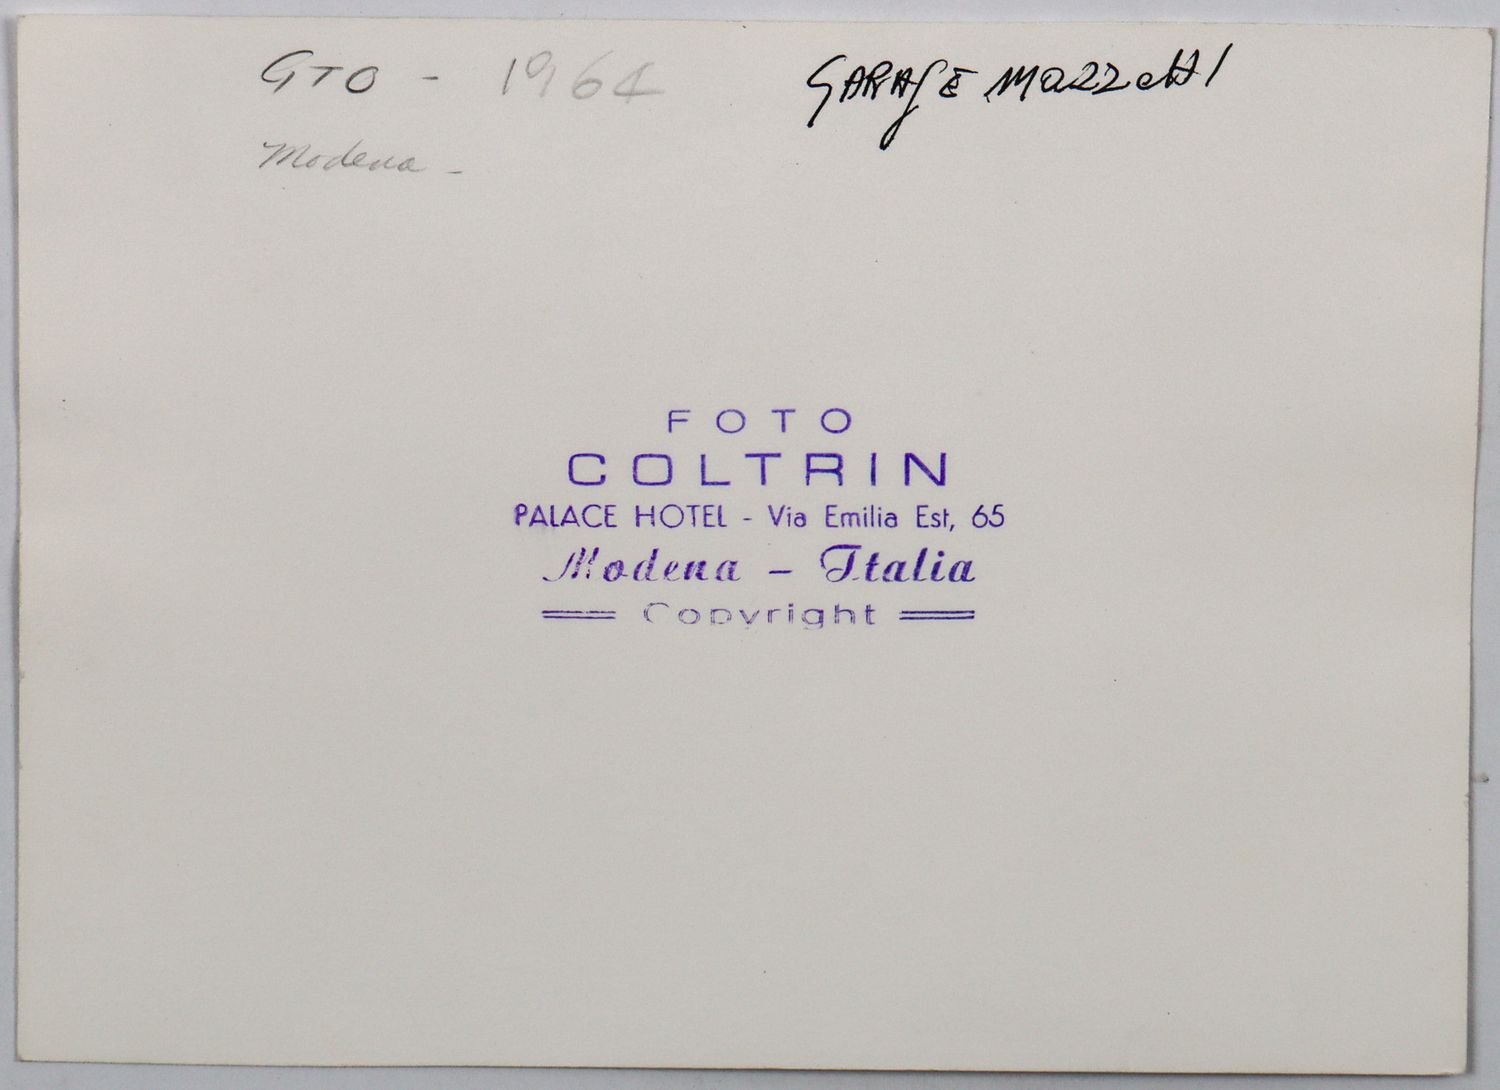 GTO - 1964
GARAGE MOZZEHI
Modena -
FOTO
COLTRIN
PALACE HOTEL - Via Emilia Est, 65
Modena - Italia
Copyright